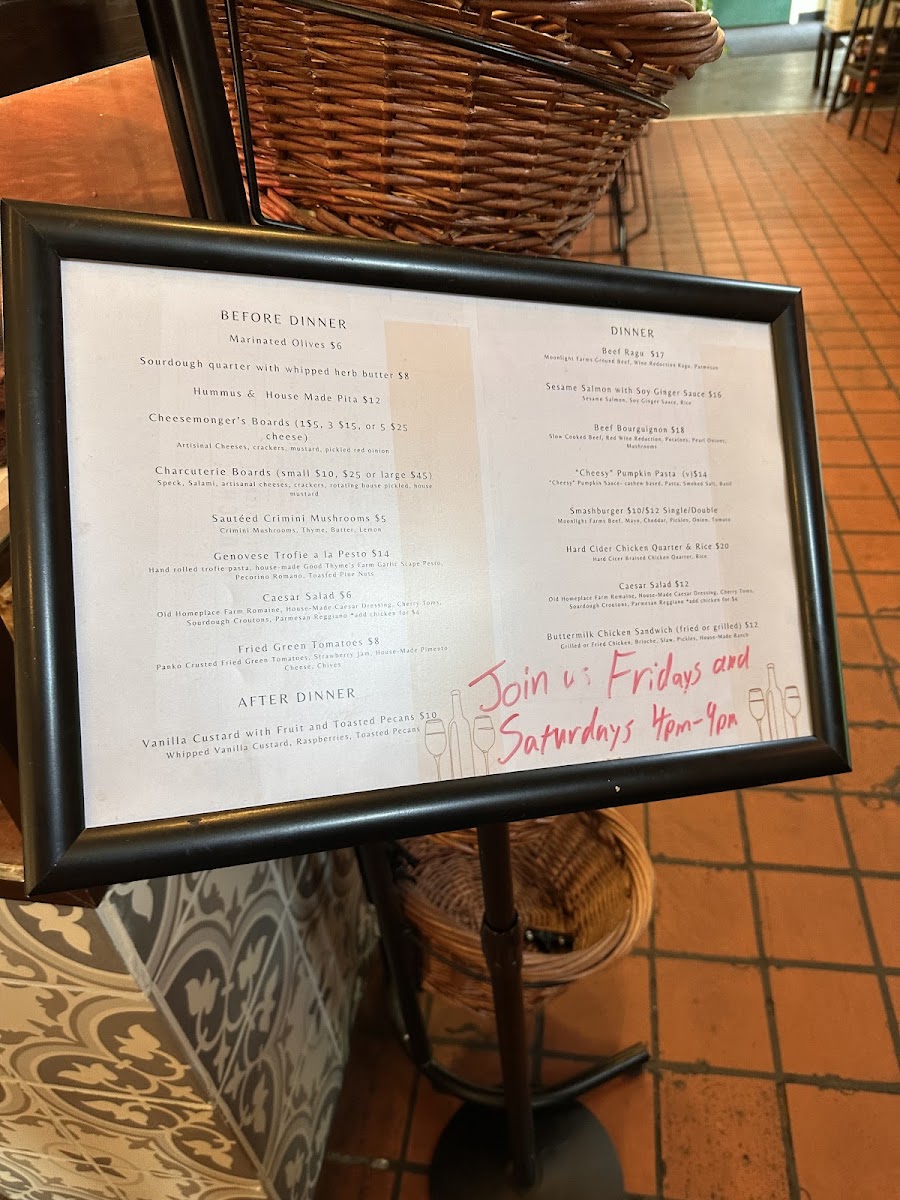 BEFORE DINNER
Marinated Olives $6
Sourdough quarter with whipped herb butter $8
Hummus & House Made Pita $12
Cheesemonger's Boards (1$5, 3 $15, or 5 $25
cheese)
Artisinal Cheeses, crackers, mustard, pickled red onion
Charcuterie Boards (small $10, $25 or large $45)
Speck, Salami, artisanal cheeses, crackers, rotating house pickled, house
mustard
Sautéed Crimini Mushrooms $5
Crimini Mushrooms, Thyme, Butter, Lemon
Genovese Trofie a la Pesto $14
Hand rolled trofie pasta, house-made Good Thyme's Farm Garlic Scape Pesto,
Pecorino Romano, Toasted Pine Nuts
Caesar Salad $6
Old Homeplace Farm Romaine, House-Made Caesar Dressing, Cherry Toms,
Sourdough Croutons, Parmesan Reggiano *add chicken for $4
Fried Green Tomatoes $8
Panko Crusted Fried Green Tomatoes, Strawberry Jam, House-Made Pimento
Cheese, Chives
AFTER DINNER
Vanilla Custard with Fruit and Toasted Pecans $10
Whipped Vanilla Custard, Raspberries, Toasted Pecans
DINNER
Beef Ragu $17
Moonlight Farms Ground Beef, Wine Reduction Ragu, Parmesan
Sesame Salmon with Soy Ginger Sauce $16
Sesame Salmon, Soy Ginger Sauce, Rice
Beef Bourguignon $18
Slow Cooked Beef, Red Wine Reduction, Potatoes, Pearl Onions,
Mushrooms
"Cheesy" Pumpkin Pasta (v)$14
"Cheesy" Pumpkin Sauce- cashew based, Pasta, Smoked Salt, Basil
Smashburger $10/$12 Single/Double
Moonlight Farms Beef, Mayo, Cheddar, Pickles, Onion, Tomato
Hard Cider Chicken Quarter & Rice $20
Hard Cicer Braised Chicken Quarter, Rice
Caesar Salad $12
Old Homeplace Farm Romaine, House-Made Caesar Dressing, Cherry Toms,
Sourdough Croutons, Parmesan Reggiano *add chicken for $4
Buttermilk Chicken Sandwich (fried or grilled) $12
Grilled or Fried Chicken, Brioche, Slaw, Pickles, House-Made Ranch
Join us Fridays and
Saturdays 4pm-9pm